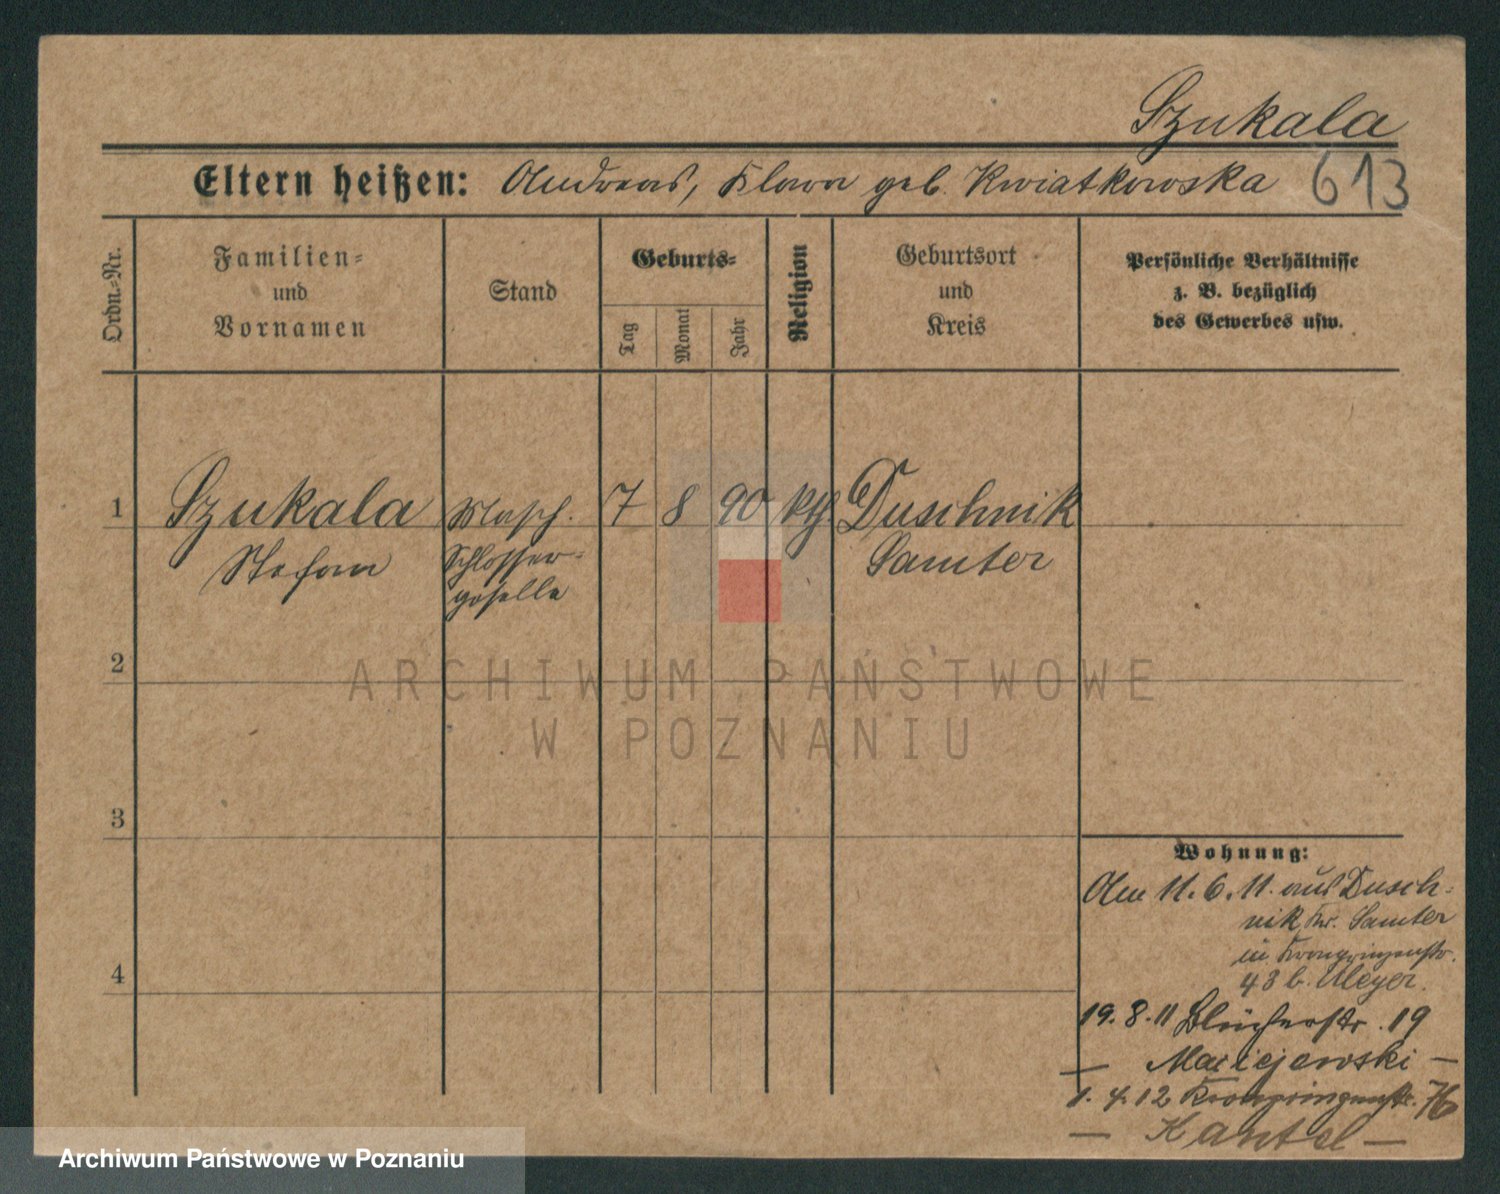 Szukala
Eltern heißen: Andreas, Klara geb. Kwiatkowska 613
Ordn.=Nr.
Familien=
und
Vornamen
Stand
Geburts=
Tag
Monat
Jahr
Religion
Geburtsort
und
Kreis
Persönliche Verhältnisse
z. B. bezüglich
des Gewerbes usw.
1 Szukala Masch. 7 8 90 kth Duschnik
Stefan Schlosser= Samter
geselle
2
ARCHIWUM PAŃSTWOWE
W POZNANIU
3
Wohnung:
Am 11. 6. 11. aus Dusch=
nik Kr. Samter
in Kronprinzenstr.
43 b. Meyer.
4
19. 8. 11 Blücherstr. 19
— Maciejewski —
1. 4. 12 Kronprinzenstr. 76
— Kantel —
Archiwum Państwowe w Poznaniu